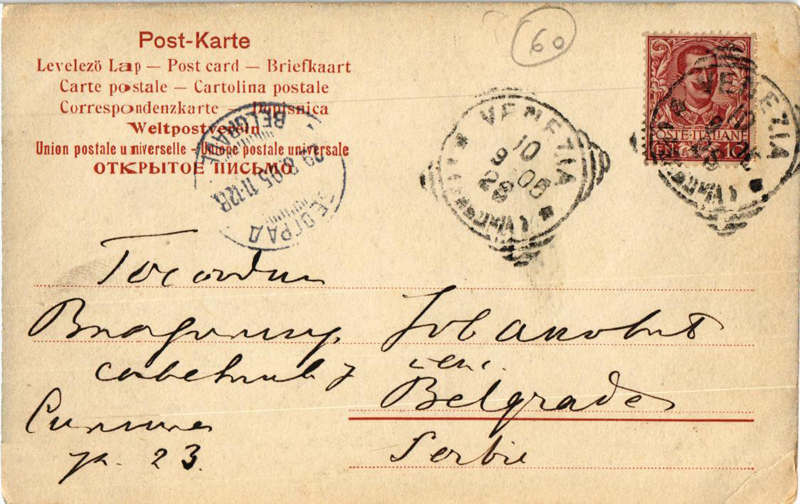 60
Post-Karte
Levelező Lap — Post card — Briefkaart
Carte postale — Cartolina postale
Correspondenzkarte — Dopisnica
Weltpostverein
Union postale universelle — Unione postale universale
ОТКРЫТОЕ ПИСЬМО
BELGRADE
БЕОГРАД
VENEZIA
10
VENEZIA
10
POSTE·ITALIANE
Господин
Владимир Јовановић
саветник
Belgrade
Serbie
23.